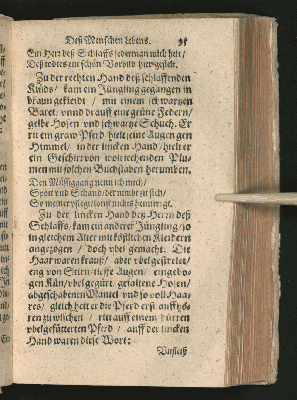 Deß Menschen Lebens. 91
Ein Herr deß Schlaffs jederman mich helt/
Deß todtes ein schön Vorbild hergestelt.
Zu der rechten Hand deß schlaffenden
Kinds/ kam ein Jüngling gegangen in
braun gekleidt / mit einem schwartzen
Baret/ vnnd drauff eine grüne Federn/
gelbe Hosen vnd schwartze Schuch. Er
ritt ein graw Pferd hielt seine Augen gen
Himmel / in der lincken Hand/ hielt er
ein Geschirr von wolriechenden Plu-
men mit solchen Buchstaben herumben.
Den Müssiggang nenn ich mich/
Spott vnd Schand/ der nimbt zu sich/
So meiner pflegt sonst nichts hernimpt.
Zu der lincken Hand deß Herrn deß
Schlaffs/ kam ein anderer Jüngling/ so
in gleichem Alter mit köstlichen Kleidern
angezogen / doch vbel gemacht. Die
Haar waren krauß/ aber vbel gestrelet/
eng von Stirn/ tieffe Augen / eingebo-
gen Kün/ vbel gegürt/ gefaltene Hosen/
abgeschabenem Mantel vnd so voll Haa-
res/ gleich hett er die Pferd erst auffhö-
ren zu wischen / ritt auff einem dürren
vbelgefütterten Pferd / auff der lincken
Hand waren diese Wort: